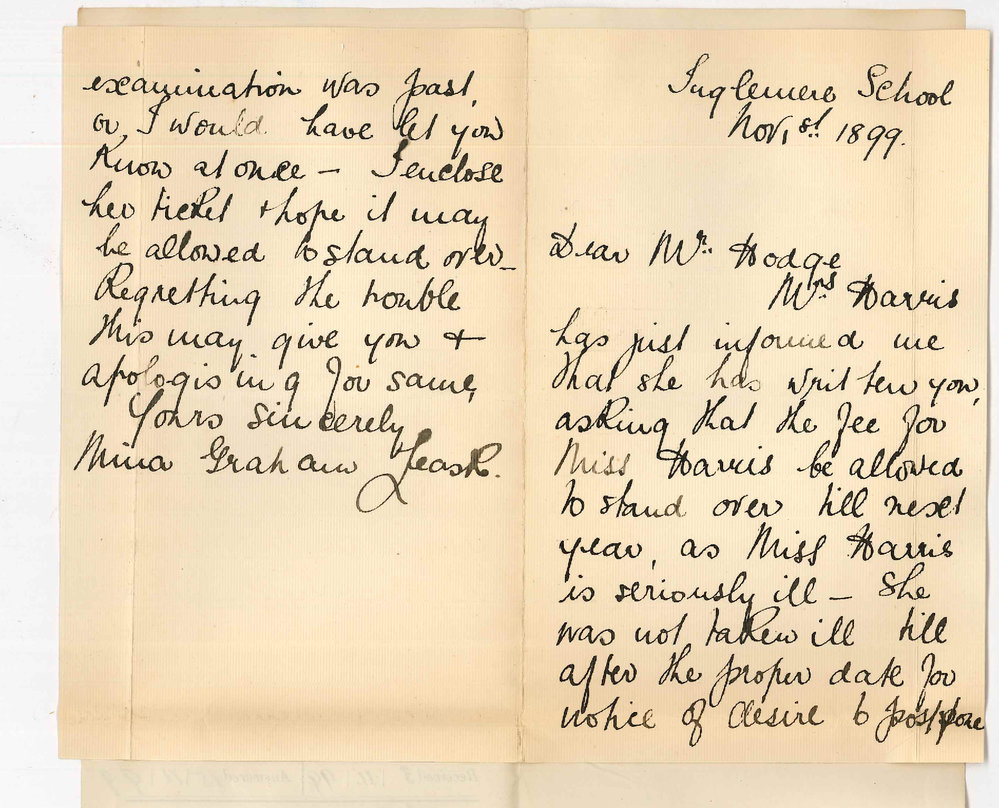 Inglemere School
Nov. 1st. 1899.
Dear Mr. Hodge
Mrs Harris
has just informed me
that she has written you,
asking that the fee for
Miss Harris be allowed
to stand over till next
year, as Miss Harris
is seriously ill – She
was not taken ill till
after the proper date for
notice of desire to postpone
examination was past,
or, I would have let you
know at once – I enclose
her ticket & hope it may
be allowed to stand over –
Regretting the trouble
this may give you &
apologising for same,
Yours sincerely
Mina Graham Leask.